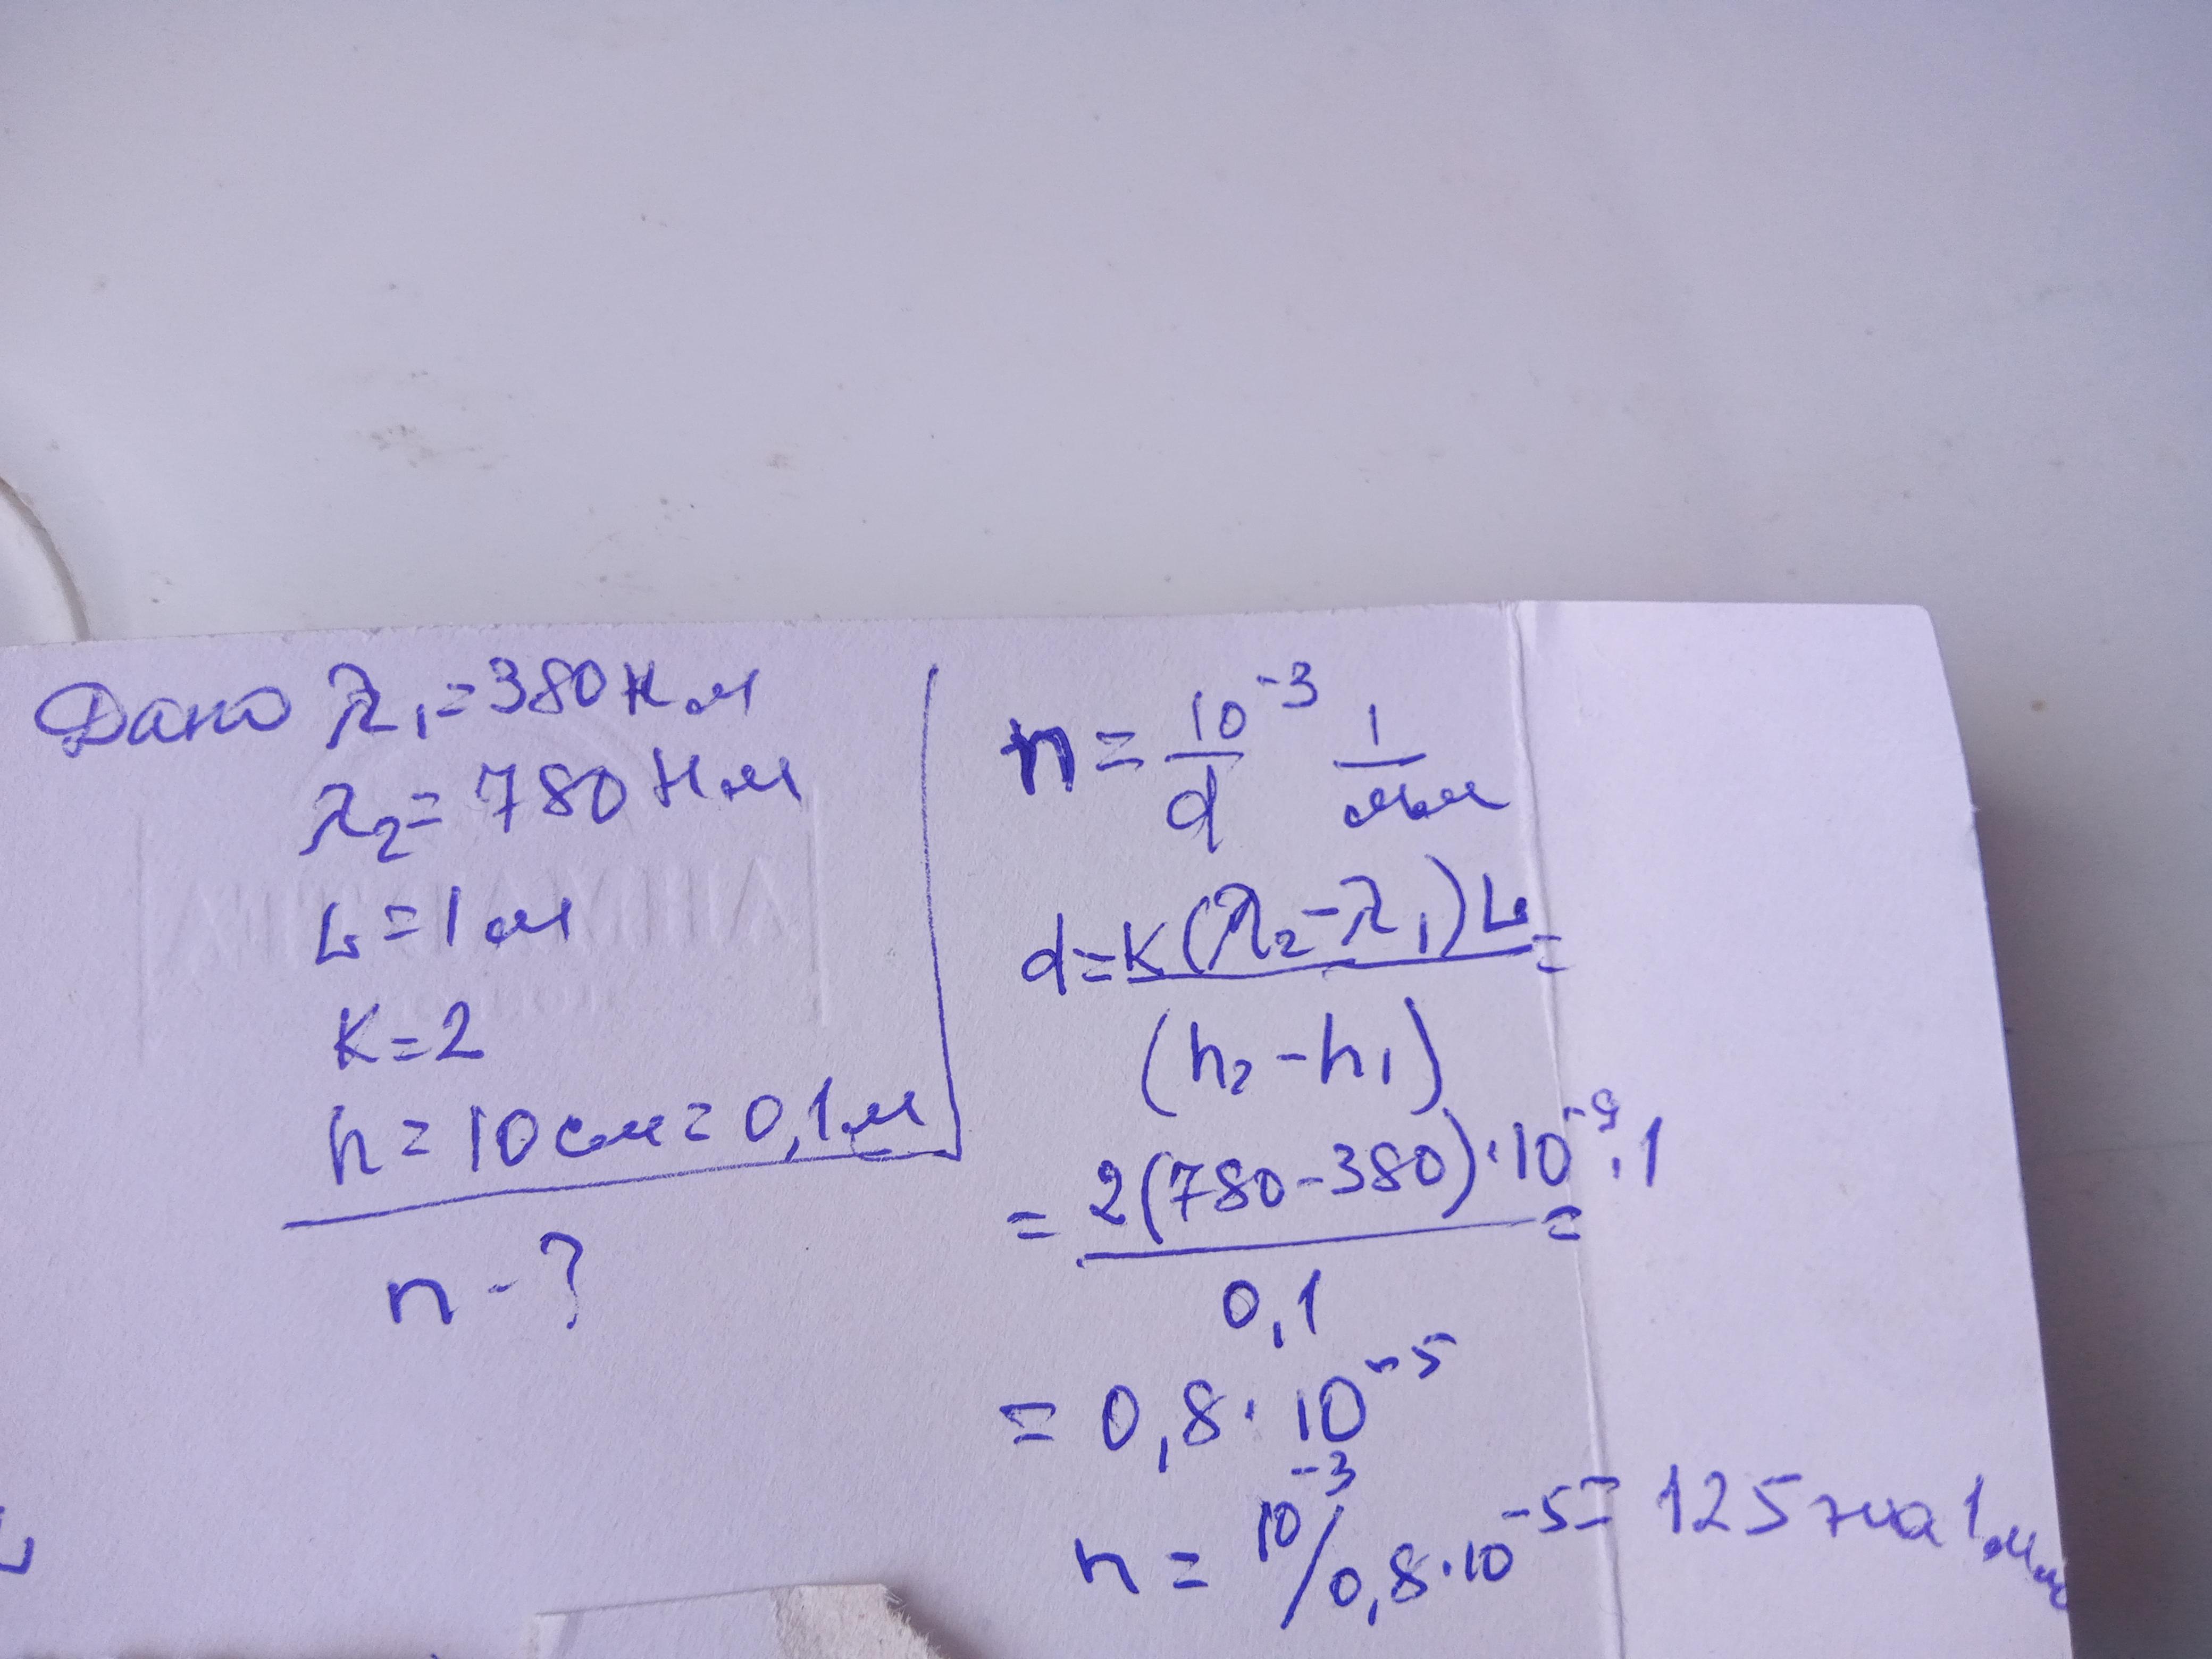 Дано λ₁=380 нм
λ₂=780 нм
L=1 м
K=2
h=10 см=0,1 м
n-?
n = 10⁻³/d 1/мм
d=K(λ₂-λ₁)L/(h₂-h₁)=
= 2(780-380)·10⁻⁹·1/0,1 =
= 0,8·10⁻⁵
n = 10⁻³/0,8·10⁻⁵= 125 на 1 мм